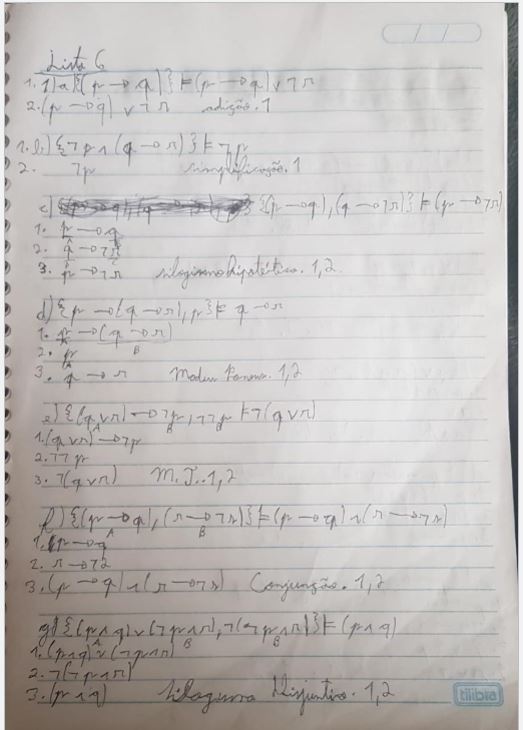 / /
Lista 6
1. 1) a) {(p → q)} ⊨ (p → q) ∨ ¬r
2. (p → q) ∨ ¬r adição. 1
1. b) {¬p ∧ (q → r)} ⊨ ¬p
2. ¬p simplificação. 1
c) {(p → q), (q → ¬r)} ⊨ (p → ¬r)
1. p → q
2. q → ¬r
3. p → ¬r silogismo hipotético. 1, 2
d) {p → (q → r), p} ⊨ q → r
1. p → (q → r)
A B
2. p
A
3. q → r Modus Ponens. 1, 2
e) {(q ∨ r) → ¬p, ¬¬p ⊨ ¬(q ∨ r)
A B B
1. (q ∨ r) → ¬p
2. ¬¬p
3. ¬(q ∨ r) M.T. 1, 2
f) {(p → q), (r → ¬s)} ⊨ (p → q) ∧ (r → ¬s)
A B
1. p → q
2. r → ¬s
3. (p → q) ∧ (r → ¬s) Conjunção. 1, 2
g) {(p ∧ q) ∨ (¬p ∧ r), ¬(¬p ∧ r)} ⊨ (p ∧ q)
A B B
1. (p ∧ q) ∨ (¬p ∧ r)
2. ¬(¬p ∧ r)
3. (p ∧ q) Silogismo Disjuntivo. 1, 2
tilibra